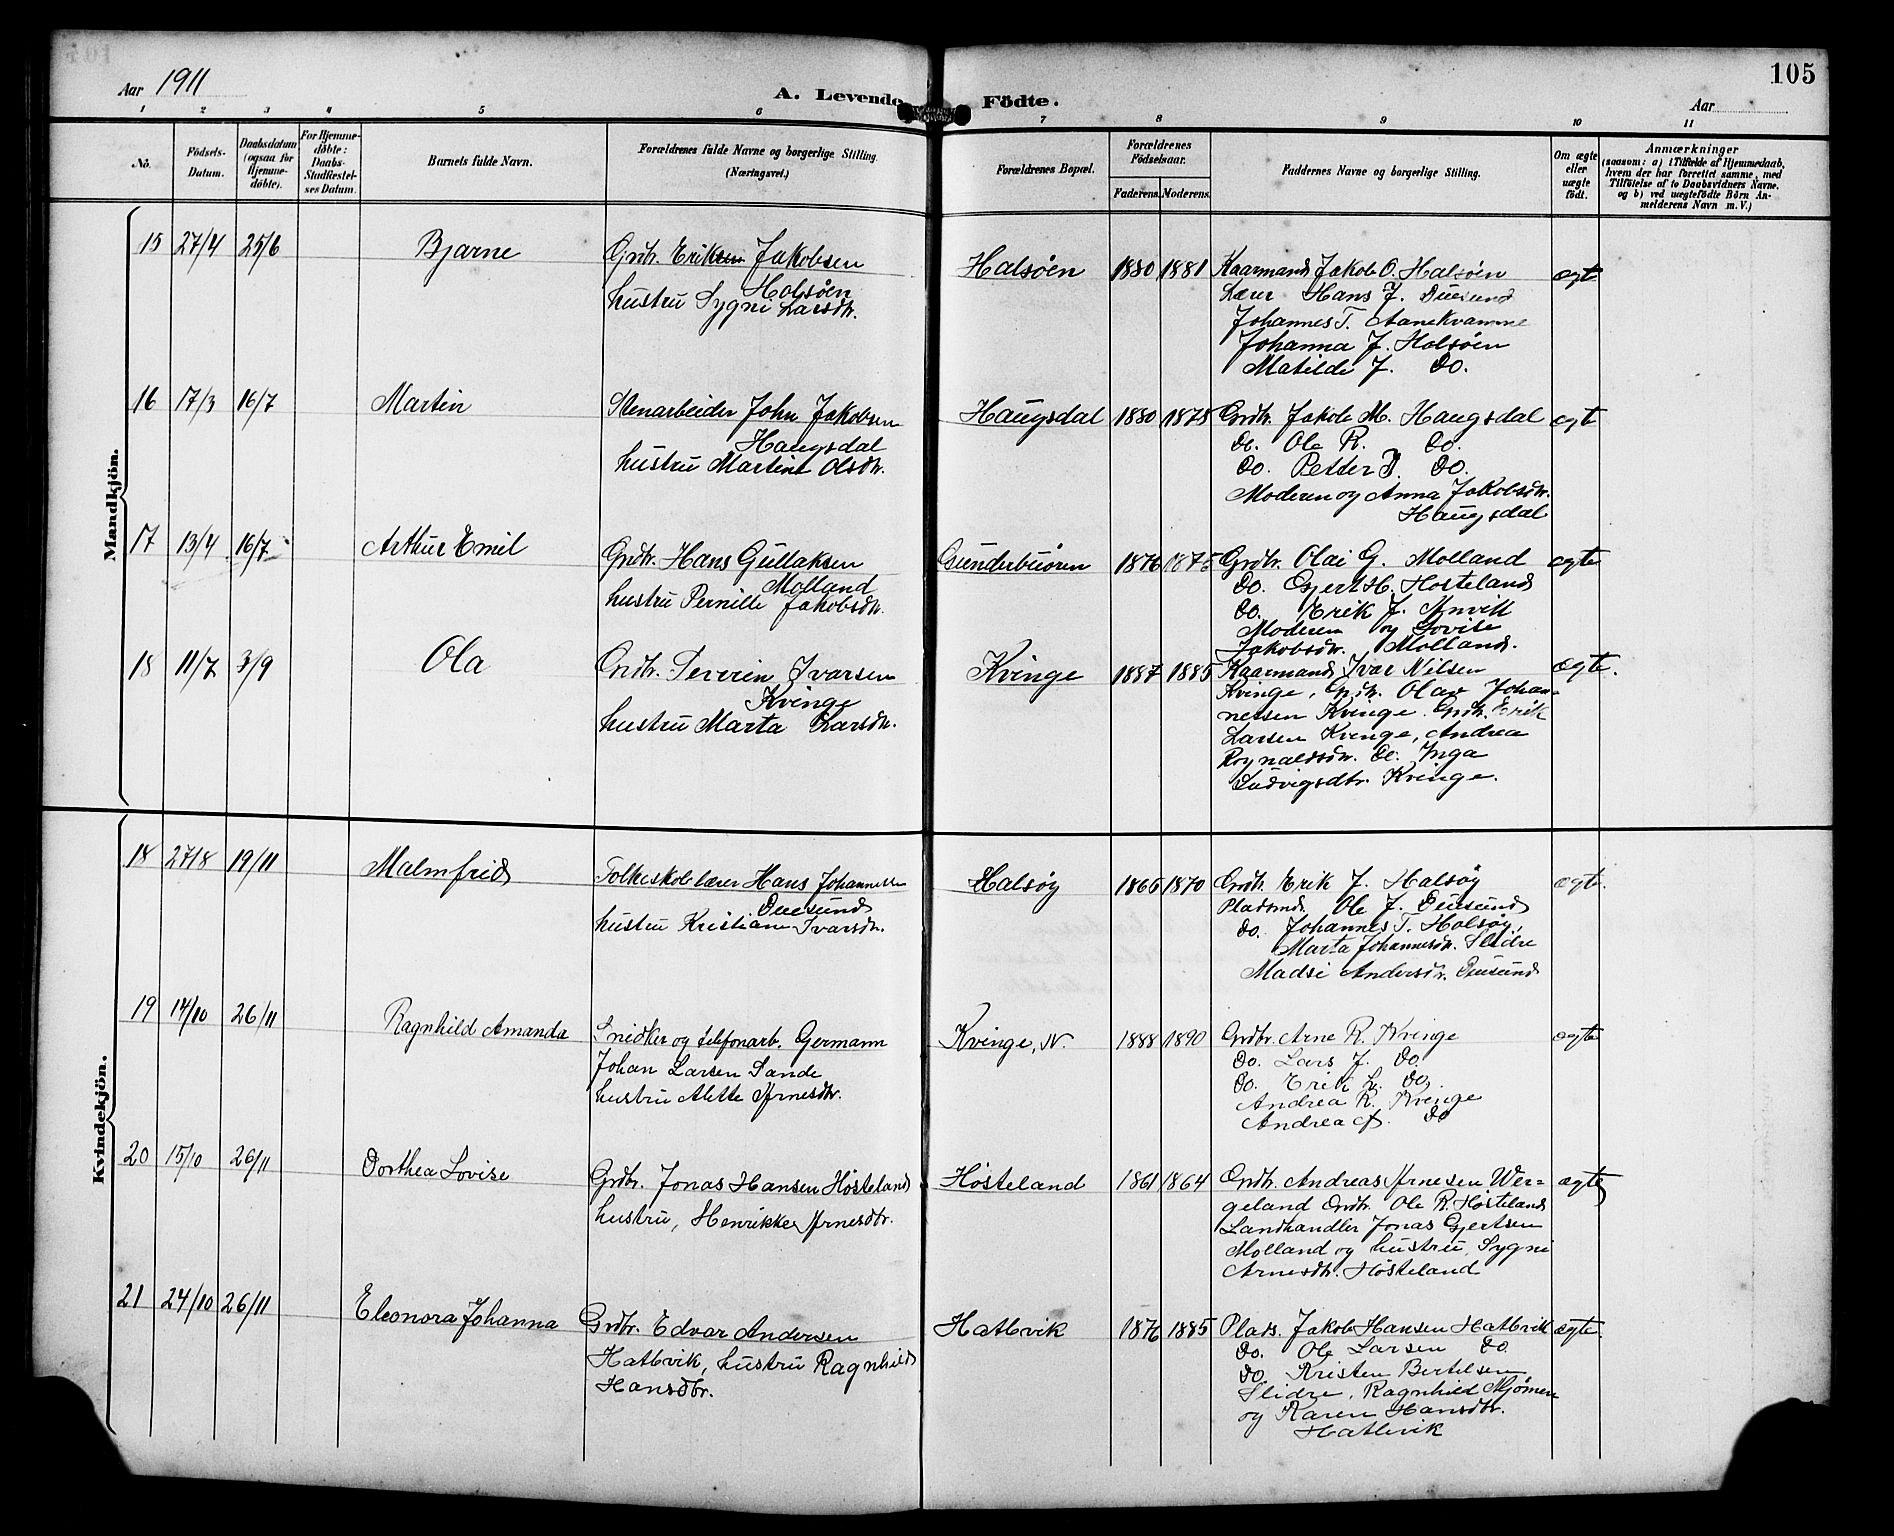 105
Aar 1911
A. Levende Födte.
Aar
1 2 3 4 5 6 7 8 9 10 11
No.
Födsels-Datum.
Daabsdatum (ogsaa for Hjemme-döbte).
For Hjemme-döbte: Daabs-Stadfæstel-ses Datum.
Barnets fulde Navn.
Forældrenes fulde Navne og borgerlige Stilling. (Næringsvei.)
Forældrenes Bopæl.
Forældrenes Födselsaar.
Faderens. Moderens.
Faddernes Navne og borgerlige Stilling.
Om ægte eller uægte födt.
Anmærkninger
(saasom: a) i Tilfælde af Hjemmedaab, hvem der har forrettet samme, med Tilföielse af to Daabsvidners Navne, og b) ved uægtefödte Börn An-melderens Navn m. V.)
Mandkjön.
15 27/4 25/6 Bjarne Grdbr. Eriksen Jakobsen Halsøen 1880 1881 Kaarmand Jakob O. Halsøen ægte
Holsøen
hustru Sygni Larsdtr.
Lærer Hans J. Duesund
Johannes T. Aanekvamme
Johanna J. Holsøen
Matilde J. Do.
16 17/3 16/7 Martin Stenarbeider John Jakobsen Haugsdal 1880 1878 Grdbr. Jakob M. Haugsdal ægte
Haugsdal
hustru Martina Olsdtr.
Do. Ole R. Do.
Do. Petter J. Do.
Moderen og Anna Jakobsdtr.
Haugsdal
17 13/4 16/7 Arthur Emil Grdbr. Hans Gullaksen Gunderbuøren 1876 1875 Grdbr. Olai G. Molland ægte
Molland
hustru Pernille Jakobsdtr.
Do. Gjert H. Hosteland
Do. Erik J.
Moderen og Lovise
Jakobsdtr. Molland.
18 11/7 3/9 Ola Grdbr. Severin Ivarsen Kvinge 1887 1885 Kaarmand Ivar Nilsen ægte.
Kvinge
hustru Marta Larsdtr.
Kvinge, Grdbr. Olav Johan-
nessen Kvinge. Grdbr. Erik
Larsen Kvinge, Andrea
Rognaldsdtr. Do. Inga
Ludvigsdtr. Kvinge.
Kvindekjön.
18 27/8 19/11 Malmfrid Folkeskolelærer Hans Johannessen Halsøy 1866 1870 Grdbr. Erik J. Halsøy ægte.
Duesund
hustru Kristiane Ivarsdtr.
Pladsmd. Ole J. Duesund
do. Johannes T. Holsøy,
Marta Johannesdtr. Slidre
Madsi Andersdtr. Duesund
19 14/10 26/11 Ragnhild Amanda Snedker og telefonarb. Germann Kvinge, N. 1888 1890 Grdbr. Arne R. Kvinge ægte
Johan Larsen Sande
hustru Alette Arnesdtr.
Do. Lars J. Do.
Do. Erik L. Do.
Andrea R. Kvinge
Andrea A. Do
20 15/10 26/11 Dorthea Lovise Grdbr. Jonas Hansen Høsteland Høsteland 1861 1864 Grdbr. Andreas Arnesen Wer- ægte
hustru, Henrikke Arnesdtr.
geland Grdbr. Ole R. Høsteland
Landhandler Jonas Gjertsen
Molland og hustru, Sygni
Arnesdtr. Høsteland
21 24/10 26/11 Eleonora Johanna Grdbr. Edvar Andersen Hatlevik 1876 1885 Plads. Jakob Hansen Hatlevik ægte.
Hatlevik, hustru Ragnhild
Hansdtr.
Do. Ole Larsen Do
Do Kristen Bertelsen
Slidre, Ragnhild Mjømen
og Karen Hansdtr.
Hatlevik